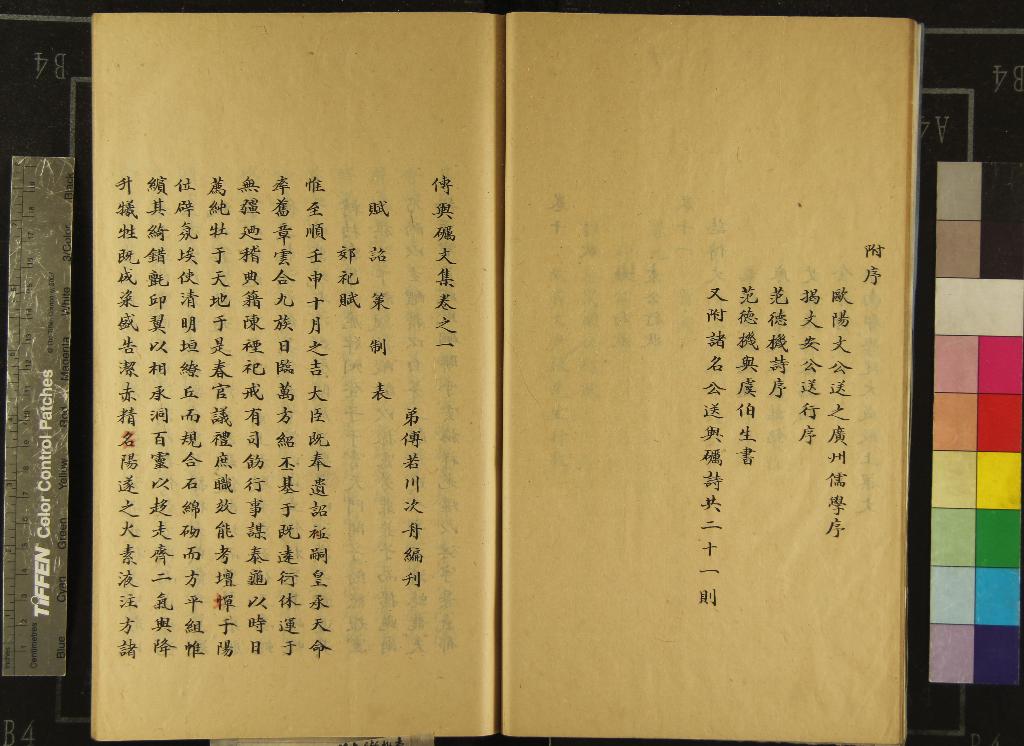 附序
歐陽文公送之廣州儒學序
揭文安公送行序
范德機詩序
范德機與虞伯生書
又附諸名公送與礪詩共二十一則
傅與礪文集卷之一
弟傅若川次舟編刊
賦 詔 策 制 表
郊祀賦
惟至順壬申十月之吉大臣既奉遺詔祗嗣皇承天命
率舊章雲合九族日臨萬方紹丕基于既遠衍休運于
無疆廼稽典籍陳禋祀戒有司飭行事謀泰龜以時日
薦純牡于天地于是春官議禮庶職效能考壇墠于陽
位辟氛埃使清明垣繚丘而規合石綿砌而方平組帷
繽其綺錯甒卬翼以相承洞百靈以趍走齊二氣與降
升犧牲既成粢盛告潔赤精名陽遂之火素液注方諸
TIFFEN Color Control Patches
Blue Cyan Green Yellow Red Magenta White 3/Color Black
Centimetres
Inches
B4
B4
A4
B4